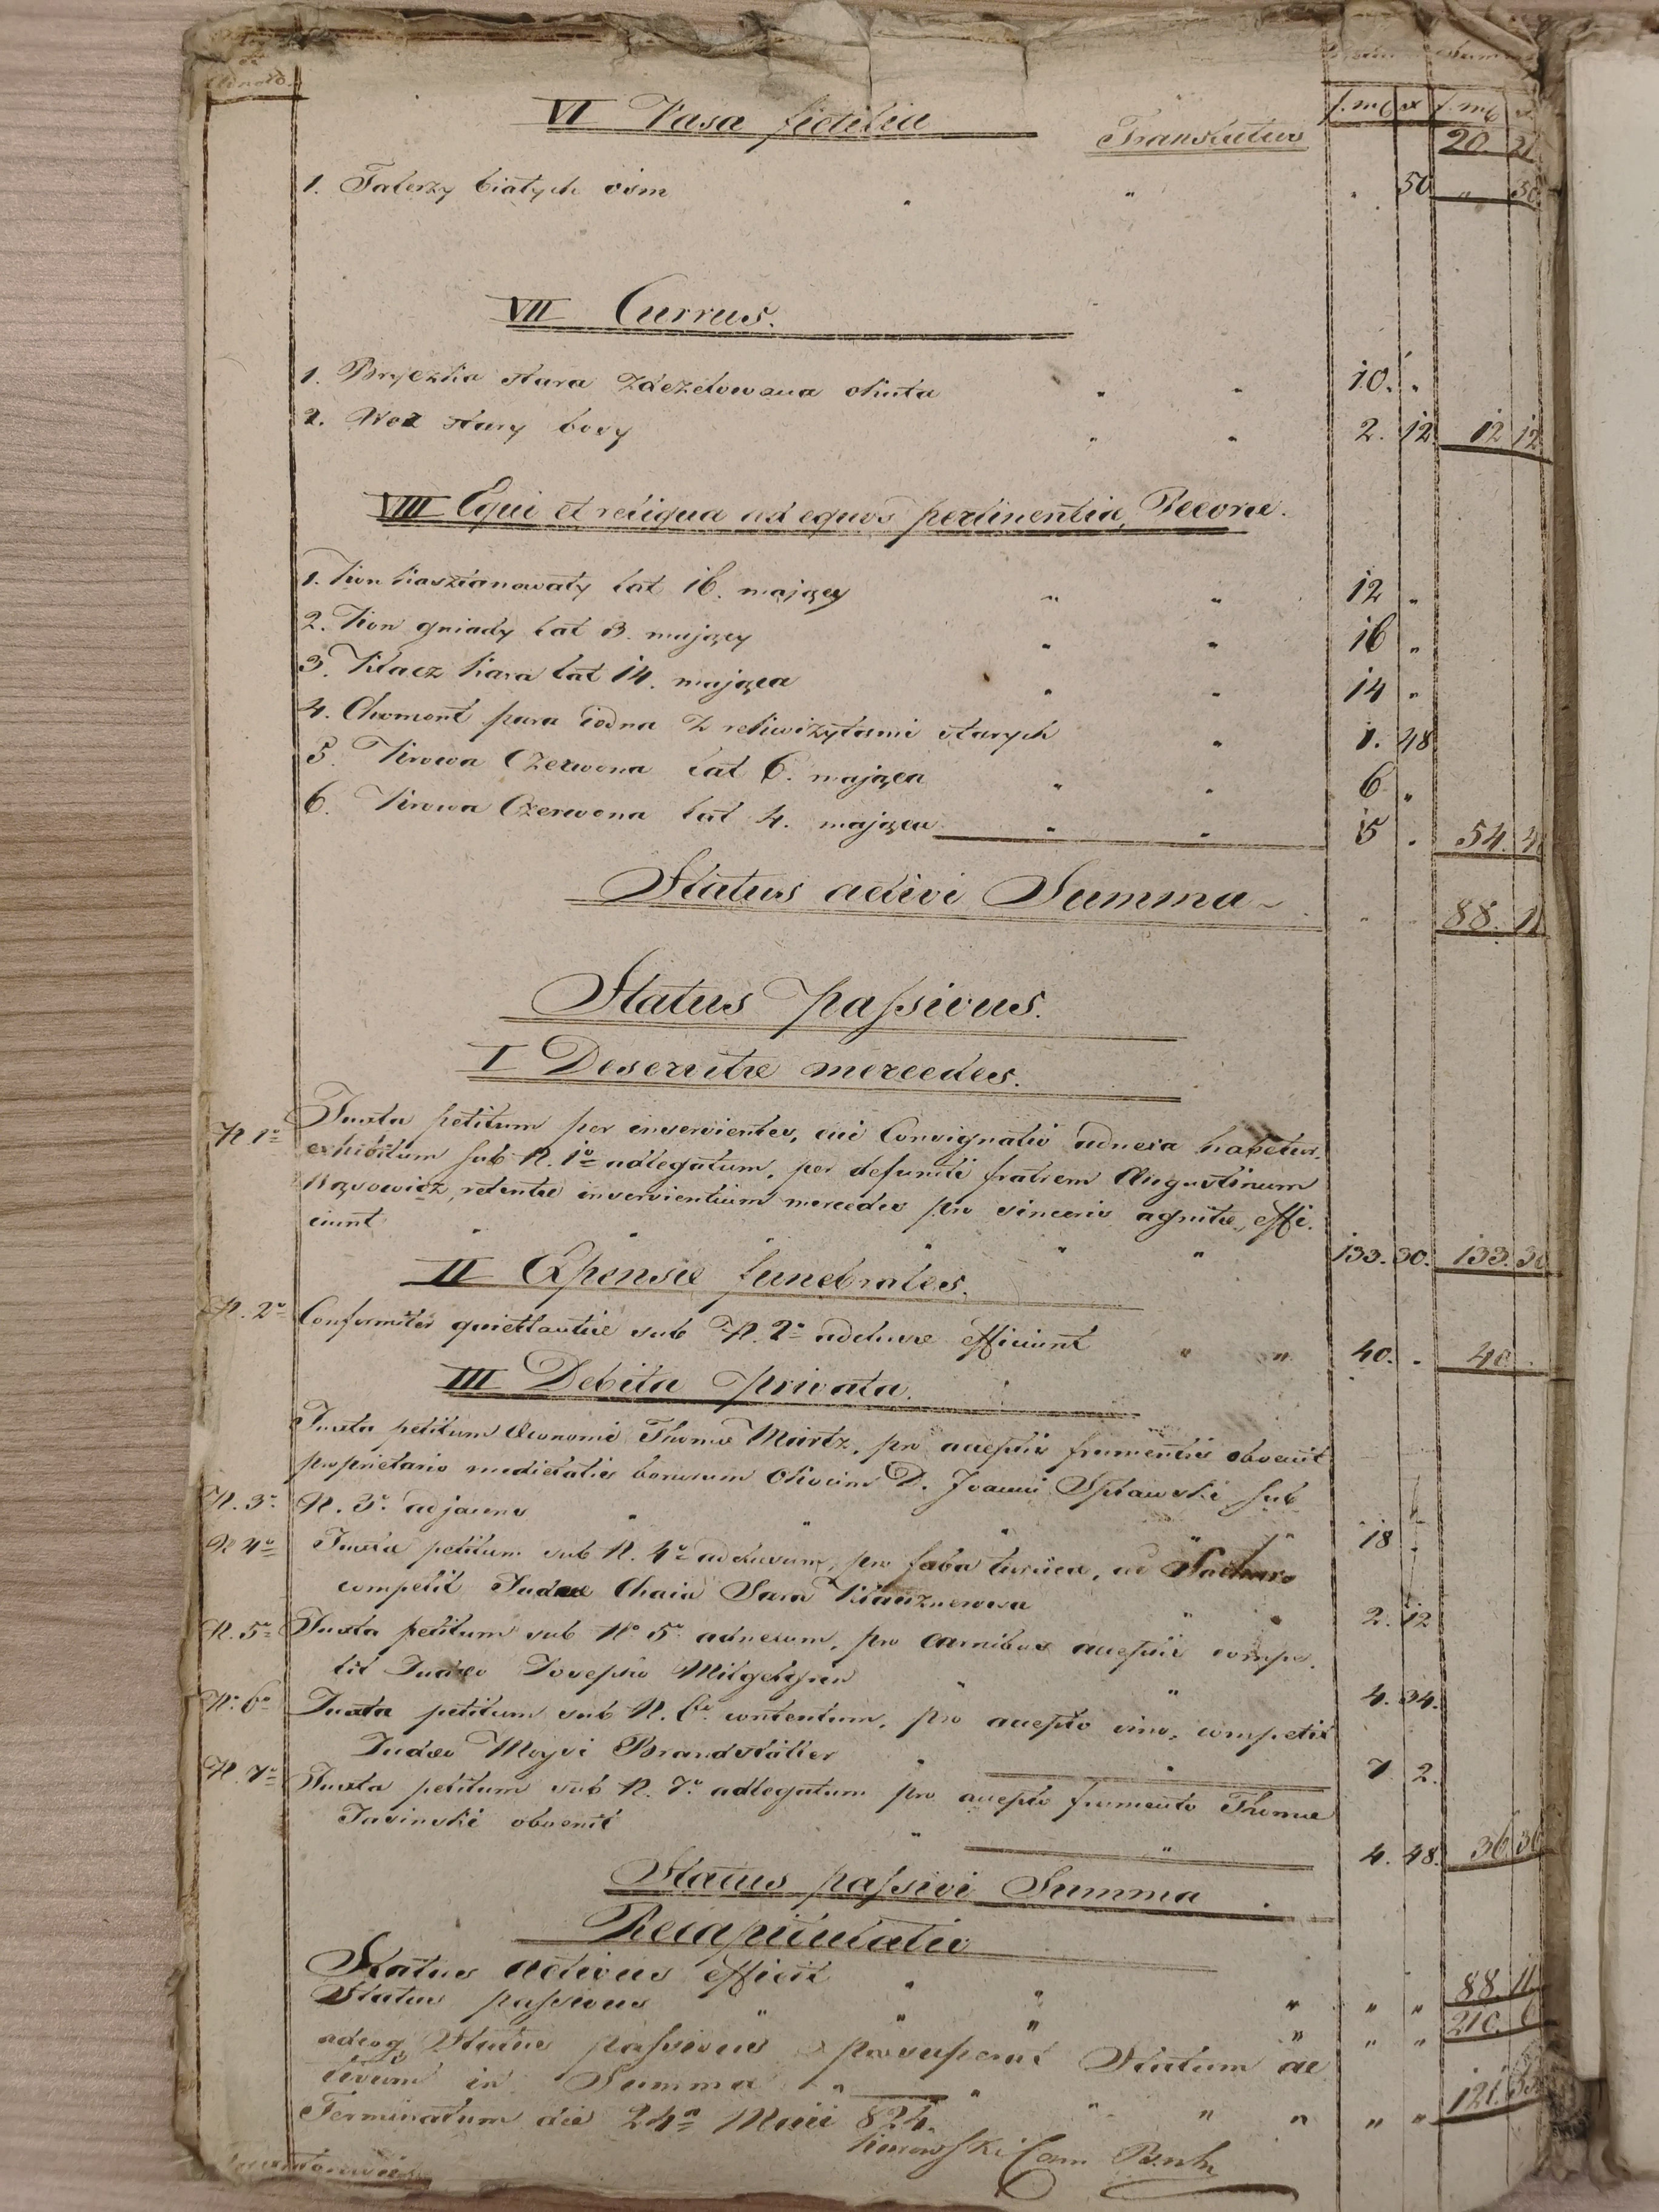 VI Vasa fictilia
f. mc x f. mc x
Translatus 20. 21
1. Talerzy białych ośm " . 50 " 50
VII Currus.
1. Bryczka stara zdezelowana okuta " " 10. "
2. Woz stary bosy " " 2. 12 12 12
VIII Equi et reliqua ad equos pertinentia, Pecora.
1. Kon kasztanowaty lat 16. mający " " 12 "
2. Kon gniady lat 3. mający " " 16 "
3. Klacz kara lat 14. mająca " " 14 "
4. Chomont para iedna z rekwizytami starych " 1. 48
5. Krowa Czerwona lat 6. mająca " " 6 "
6. Krowa Czerwona lat 4. mająca " " 5 " 54. 48
Status activi Summa 88. 11
Status passivus.
I Deservitæ mercedes.
N. 1o Juxta petitum per inservientes, cui Consignatio adnexa habetur,
exhibitum sub N. 1o adlegatum, per defuncti fratrem Augustinum
Wąsowicz, retentæ inservientium mercedes pro sinceris agnitæ, effi-
ciunt " " " " " 133. 30. 133. 30
II Expensæ funebrales.
N. 2o Conformiter quietantiæ sub N. 2o adclusæ efficiunt " " 40. " 40
III Debita privata.
Juxta petitum Œconomi Thomæ Martz, pro acceptis frumentis obvenit
proprietario medietatis bonorum Okocim D. Joanni Spławski sub
N. 3o N. 3o adjacens " " " " " 18 "
N 4o Juxta petitum sub N. 4o adclusum, pro faba turcica, ad
competit Judææ Chaia Sara " " 2. 12
N. 5o Juxta petitum sub No 5o adnexum, pro carnibus acceptis compe-
tit Judæo Josepho " " 4. 34.
N. 6o Juxta petitum sub N. 6o contentum, pro accepto vino, competit
Judæo Moysi Brandstätter " " 7 2.
N. 7o Juxta petitum sub N. 7o adlegatum pro accepto frumento Thomæ
Jasinski obvenit " " 4. 48. 36 36
Status passivi Summa
Recapitulatio
Status activus efficit " " " " " 88. 11
Status passivus " " " " " " 210. 6
adeoq. Status passivus præsuperat Statum ac-
tivum in Summa " " " " " " " 121. 55
Terminatum die 24a Maii 824.